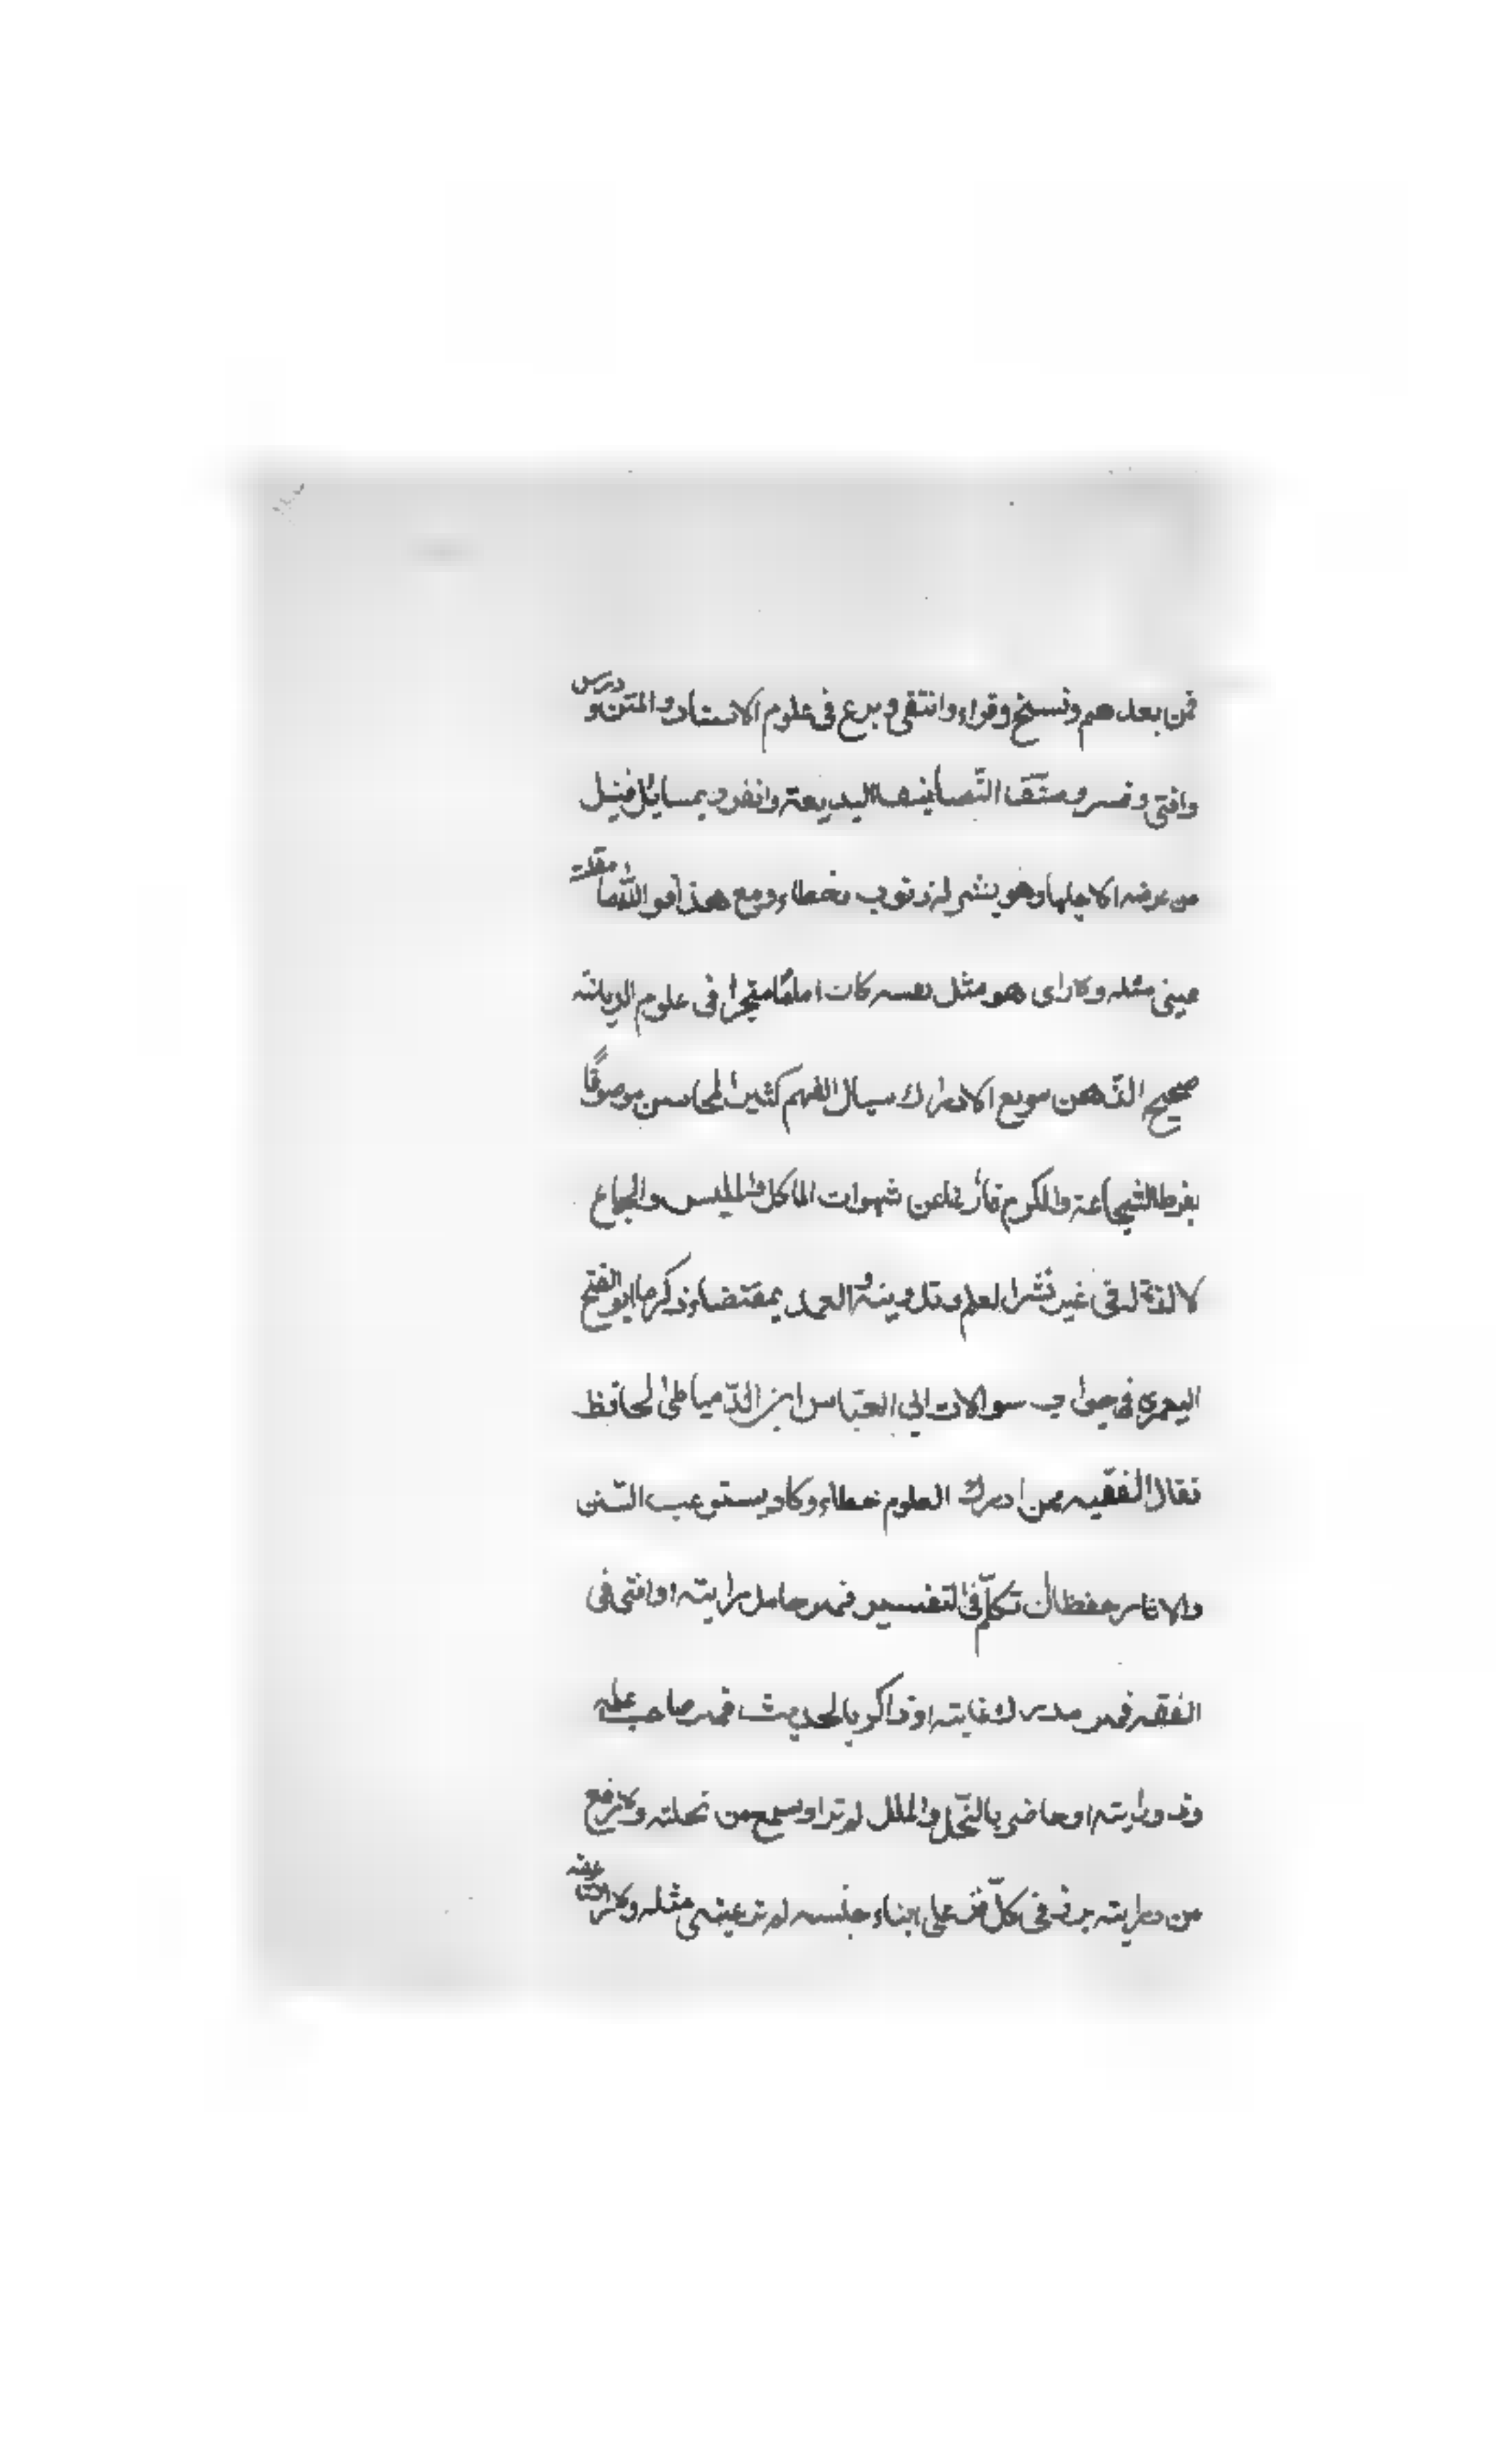 فمن بعدهم ونسخ وقراء وانتقى وبرع فى علوم الاسناد والمتن ودرس
وافتى وفسر وصنّف التّصانيف البديعة وانفرد بمسائل فنيل
من عرضه لاجلها وهو بشر له ذنوب وخطاء ومع هذا فو الله ما مقلت
عينى مثله ولا راى هو مثل نفسه كان امامًا متبحرا فى علوم الديانة
صحيح الذّهن سريع الادراك سيال الفهم كثير المحاسن موصوفًا
بفرط الشجاعة والكرم فارغا عن شهوات الماكل والملبس والجماع
لا لذة له فى غير نشر العلم وتدوينه والعمل بمقتضاه ذكره ابو الفتح
اليعمرى فى جواب سوالات ابى العبّاس ابن الدّمياطى الحافظ
فقال الفقيه ممن ادرك العلوم حظاء وكاد يستوعب السّنن
والاثار حفظا ان تكلّم فى التفسير فهو حامل رايته او افتى فى
الفقه فهو مدرك غايته او ذاكر بالحديث فهو صاحب علمه
وذو رايته او حاضر بالنّحل والملل لم تر اوسع من نحلته ولا ارفع
من درايته برز فى كلّ فن على ابناء جنسه لم تر عينى مثله ولا رات عينه